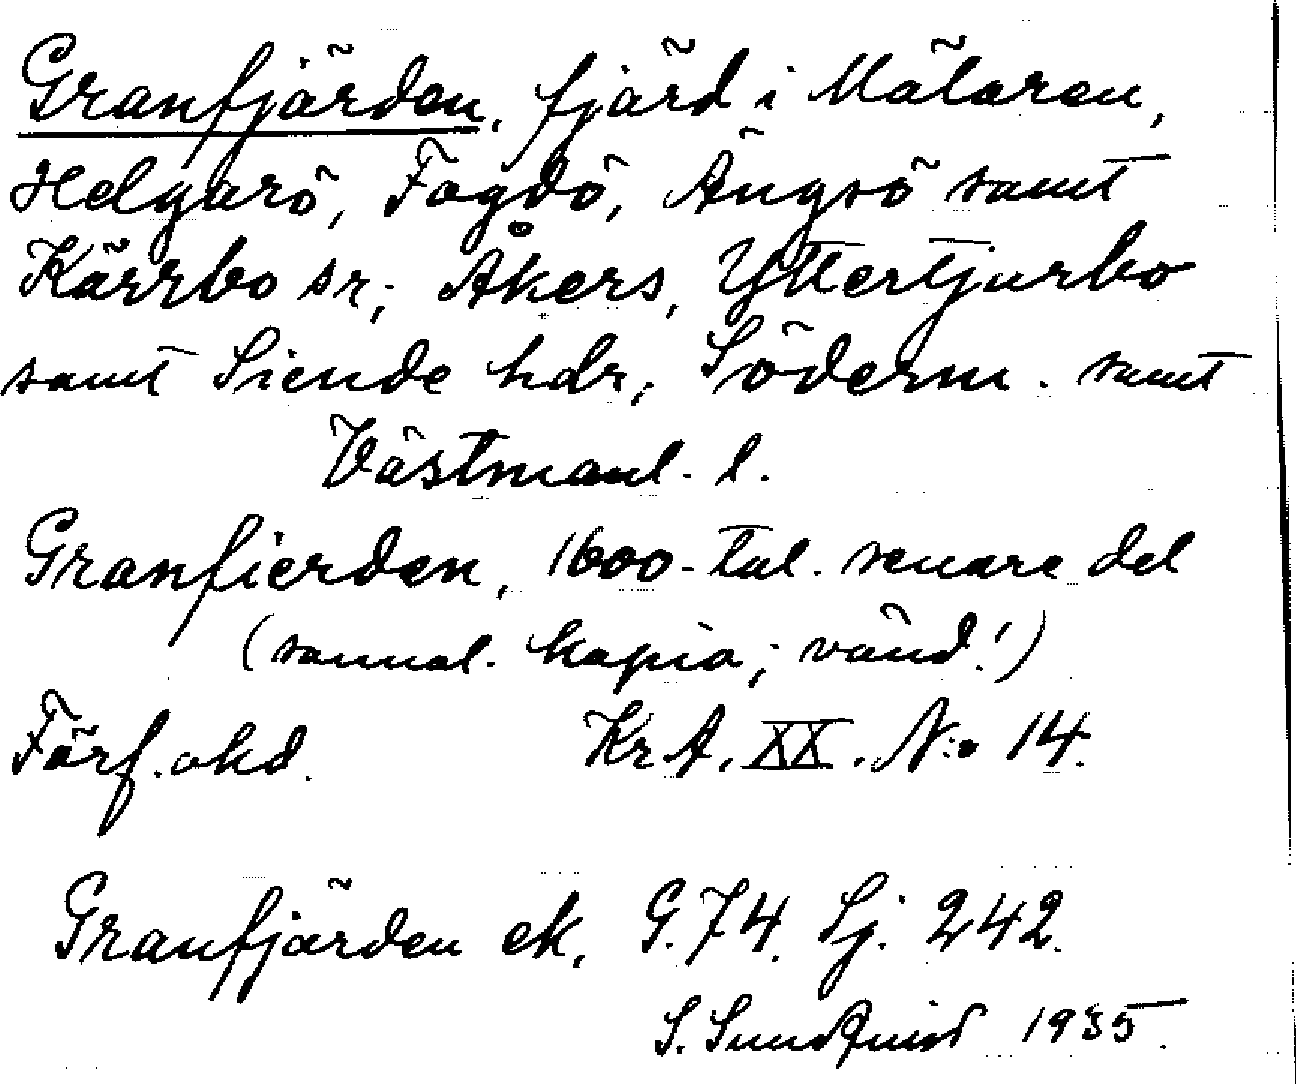 Granfjärden, fjärd i Mälaren,
Helgarö, Fogdö, Ängsö samt
Kärrbo sr; Åkers, Yttertjurbo
samt Siende hdr; Söderm. samt
Västmanl. l.
Granfierden, 1600-tal. senare del
(sannol. kopia; vänd!)
Förf. okd. Kr A. XX. N:o 14.
Granfjärden ek. G. 74. Sj. 242.
S. Sundquist 1935.